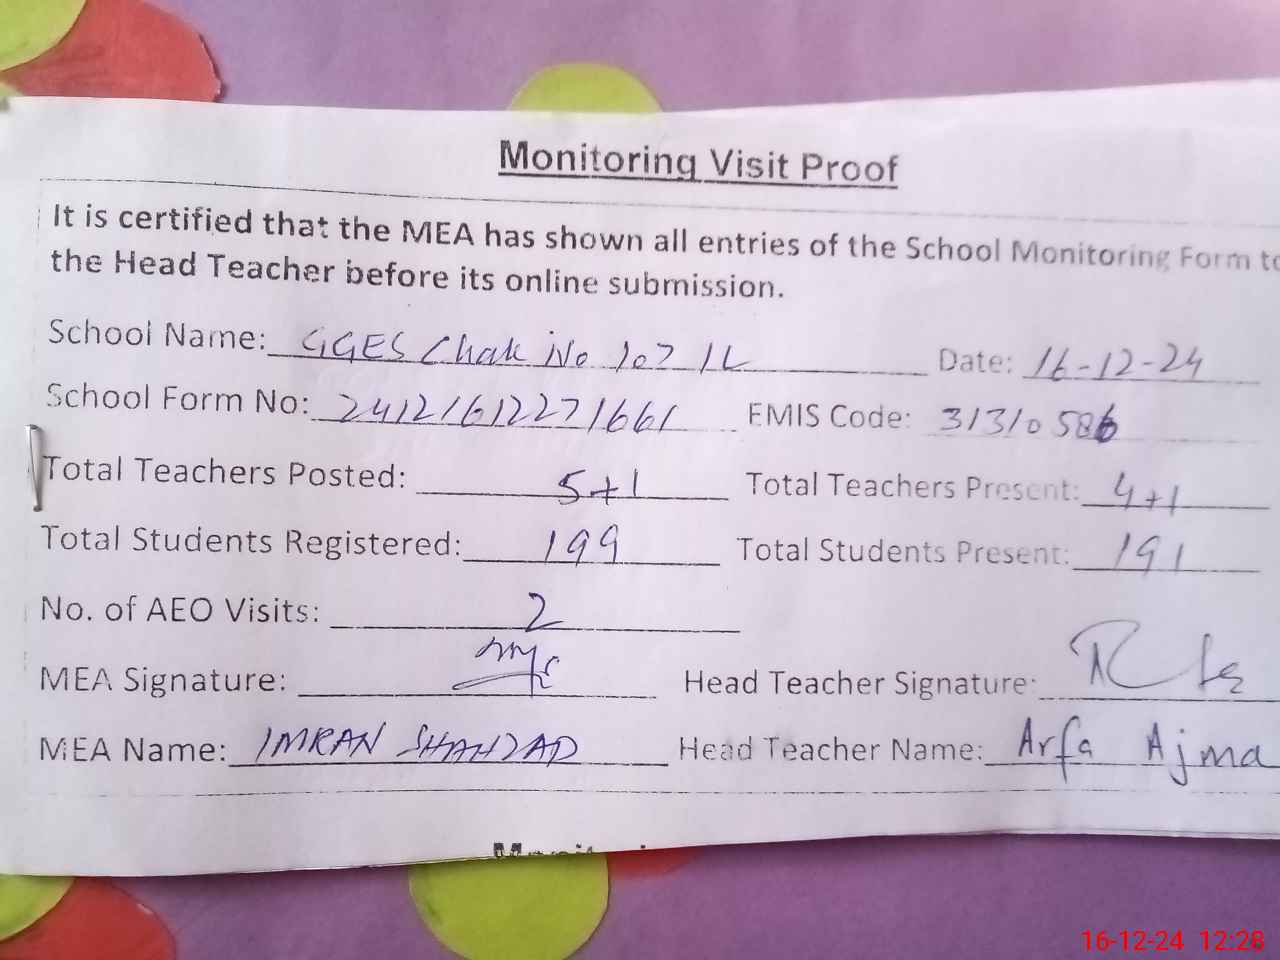 Monitoring Visit Proof
It is certified that the MEA has shown all entries of the School Monitoring Form to
the Head Teacher before its online submission.
School Name: GGES Chak No 107 1L Date: 16-12-24
School Form No: 24121612271661 EMIS Code: 31310586
Total Teachers Posted: 5+1 Total Teachers Present: 4+1
Total Students Registered: 199 Total Students Present: 191
No. of AEO Visits: 2
MEA Signature: Head Teacher Signature:
MEA Name: IMRAN SHAHZAD Head Teacher Name: Arfa Ajma
16-12-24 12:28